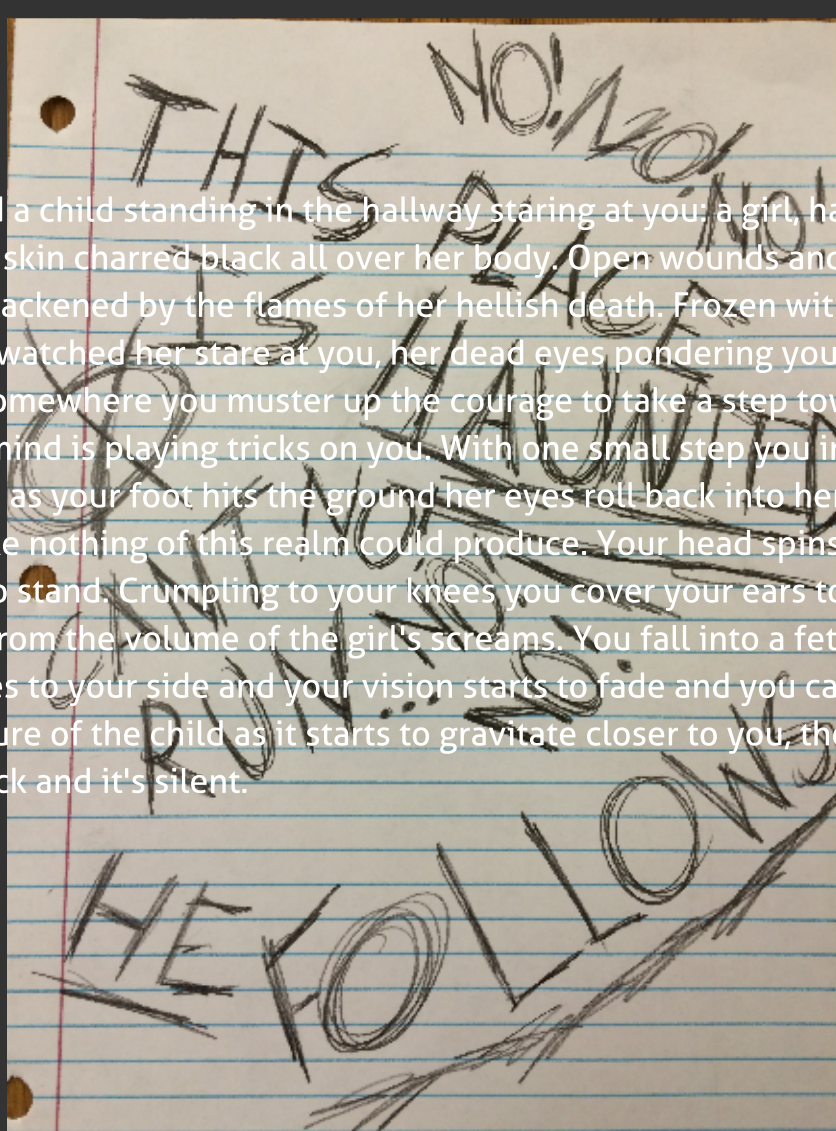 NO! NO! NO!
THIS PLACE
IS HAUNTED
CANT
RUN...
NO! NO! NO!
HE FOLLOWS
a child standing in the hallway staring at you: a girl,
skin charred black all over her body. Open wounds
by the flames of her hellish death. Frozen
watched her stare at you, her dead eyes pondering
you muster up the courage to take a step
is playing tricks on you. With one small step you
as your foot hits the ground her eyes roll back into
nothing of this realm could produce. Your head spins
stand. Crumpling to your knees you cover your ears
the volume of the girl's screams. You fall into a
to your side and your vision starts to fade and you
of the child as it starts to gravitate closer to you,
and it's silent.